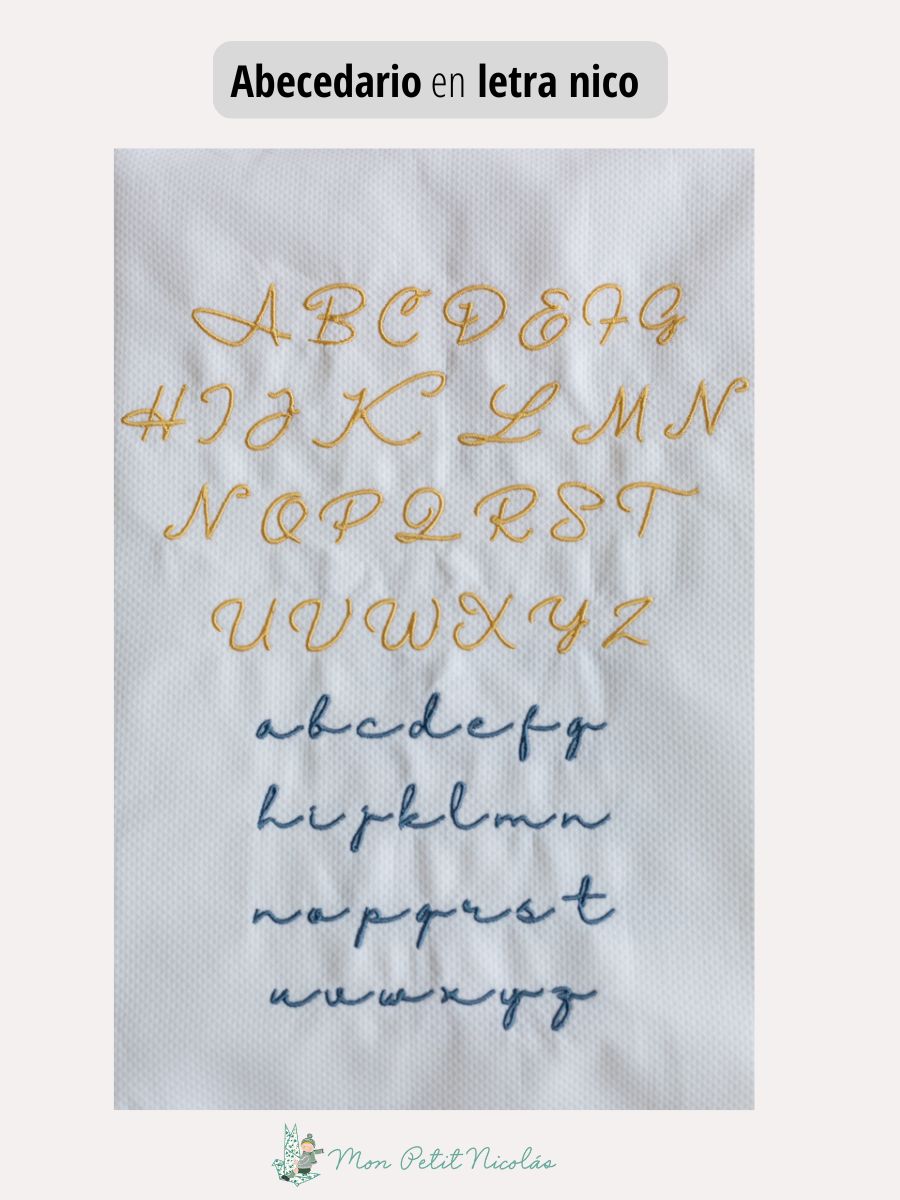 Abecedario en letra nico
A B C D E F G
H I J K L M N
N O P Q R S T
U V W X Y Z
a b c d e f g
h i j k l m n
n o p q r s t
u v w x y z
Mon Petit Nicolás